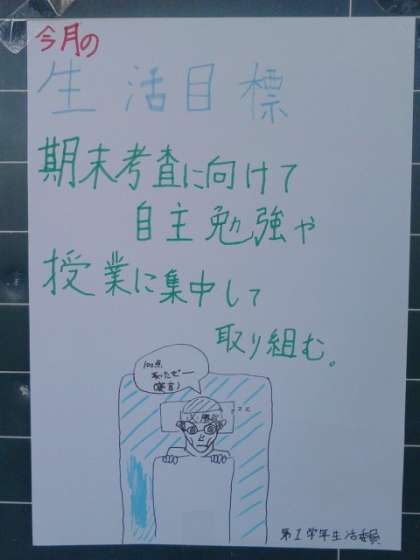 今月の
生活目標
期末考査に向けて
自主勉強や
授業に集中して
取り組む。
100点
(寝言)
必勝
第1学年生活委員